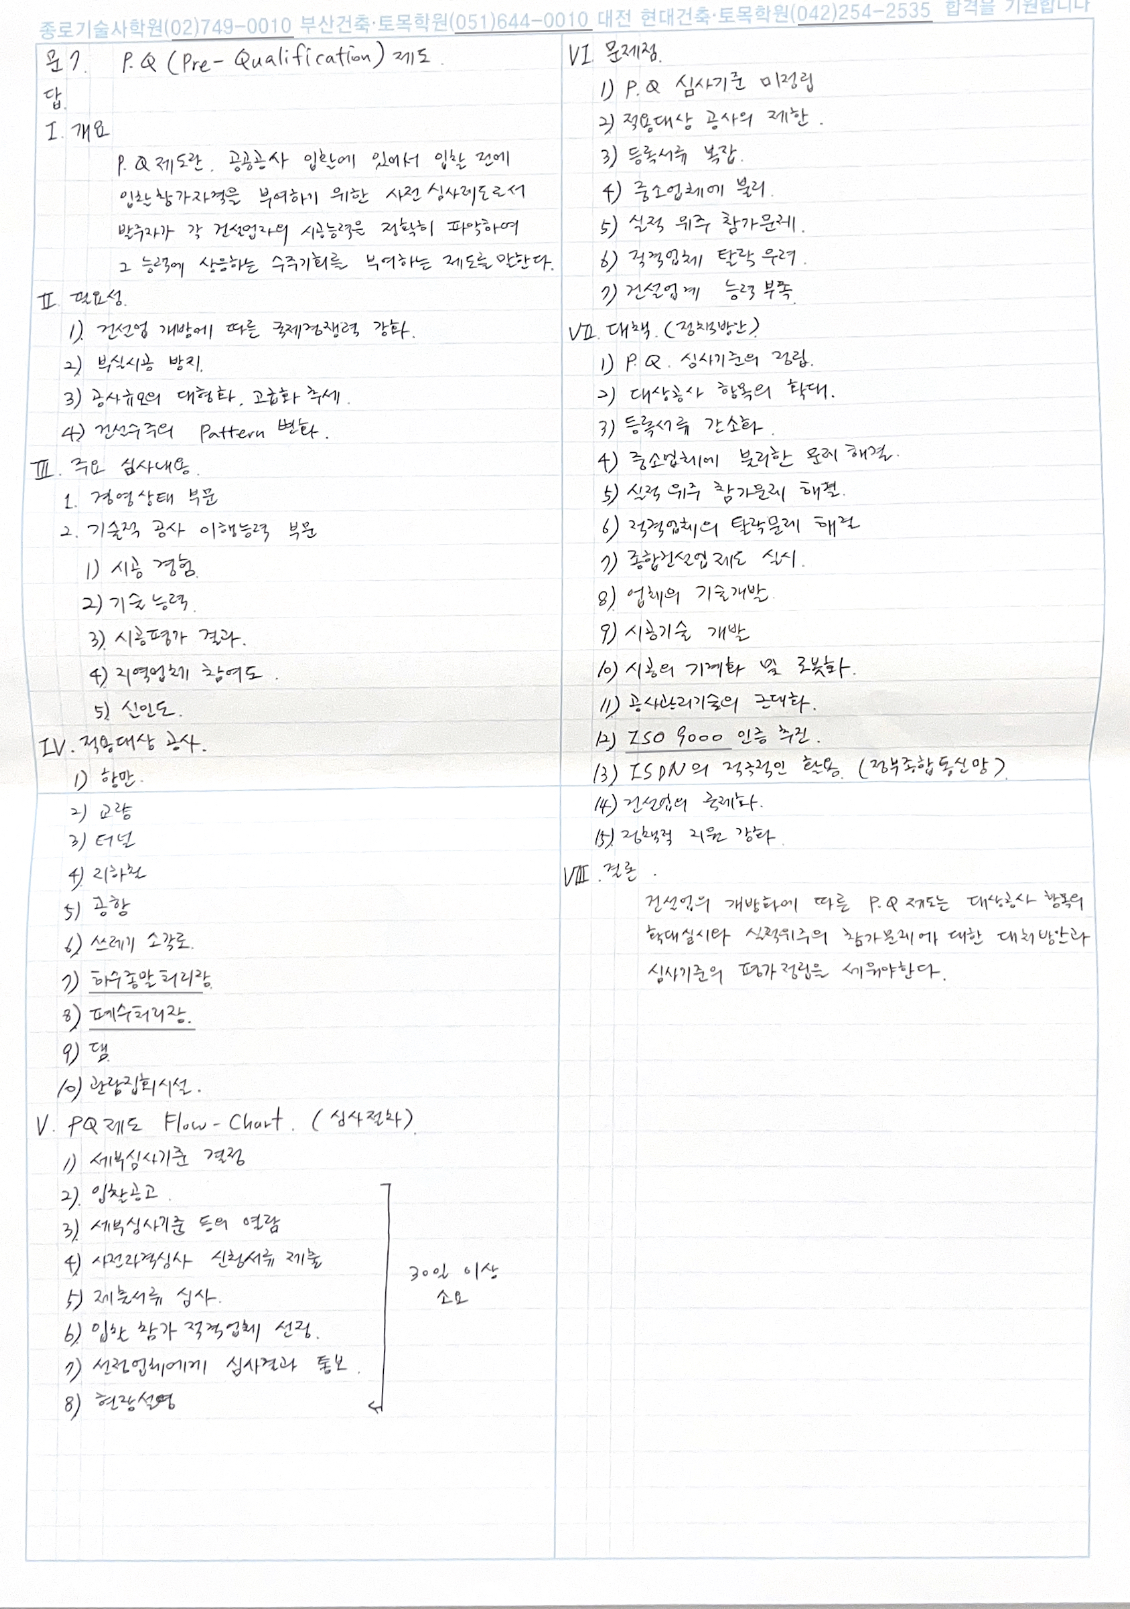 종로기술사학원(02)749-0010 부산건축·토목학원(051)644-0010 대전 현대건축·토목학원(042)254-2535 합격을 기원합니다
문7. P.Q (Pre-Qualification) 제도.
답.
I. 개요
P.Q 제도란, 공공공사 입찰에 있어서 입찰 전에
입찰참가자격을 부여하기 위한 사전 심사제도로서
발주자가 각 건설업자의 시공능력은 정확히 파악하여
그 능력에 상응하는 수주기회를 부여하는 제도를 말한다.
II. 필요성.
1) 건설업 개방에 따른 국제경쟁력 강화.
2) 부실시공 방지.
3) 공사규모의 대형화, 고급화 추세.
4) 건설수주의 Pattern 변화.
III. 주요 심사내용.
1. 경영상태 부문
2. 기술적 공사 이행능력 부문
1) 시공 경험.
2) 기술능력.
3) 시공평가 결과.
4) 지역업체 참여도.
5) 신인도.
IV. 적용대상 공사.
1) 항만.
2) 교량
3) 터널
4) 지하철
5) 공항
6) 쓰레기 소각로.
7) 하수종말처리장.
8) 폐수처리장.
9) 댐.
10) 관람집회시설.
V. PQ제도 Flow-Chart. (심사절차)
1) 세부심사기준 결정
2) 입찰공고.
3) 세부심사기준 등의 열람
4) 사전자격심사 신청서류 제출
5) 제출서류 심사.
6) 입찰 참가 적격업체 선정.
7) 선정업체에게 심사결과 통보.
8) 현장설명
30일 이상
소요
VI. 문제점.
1) P.Q 심사기준 미정립
2) 적용대상 공사의 제한.
3) 등록서류 복잡.
4) 중소업체에 불리.
5) 실적 위주 참가문제.
6) 적격업체 탈락 우려.
7) 건설업계 능력부족.
VII. 대책. (정착방안)
1) P.Q. 심사기준의 정립.
2) 대상공사 항목의 확대.
3) 등록서류 간소화.
4) 중소업체에 불리한 문제 해결.
5) 실적 위주 참가문제 해결.
6) 적격업체의 탈락문제 해결
7) 종합건설업제도 실시.
8) 업체의 기술개발.
9) 시공기술 개발
10) 시공의 기계화 및 로봇화.
11) 공사관리기술의 근대화.
12) ISO 9000 인증 추진.
13) ISDN의 적극적인 활용. (정부종합통신망)
14) 건설업의 국제화.
15) 정책적 지원 강화.
VIII. 결론.
건설업의 개방화에 따른 P.Q 제도는 대상공사 항목의
확대실시와 실적위주의 참가문제에 대한 대처방안과
심사기준의 평가정립을 세워야한다.